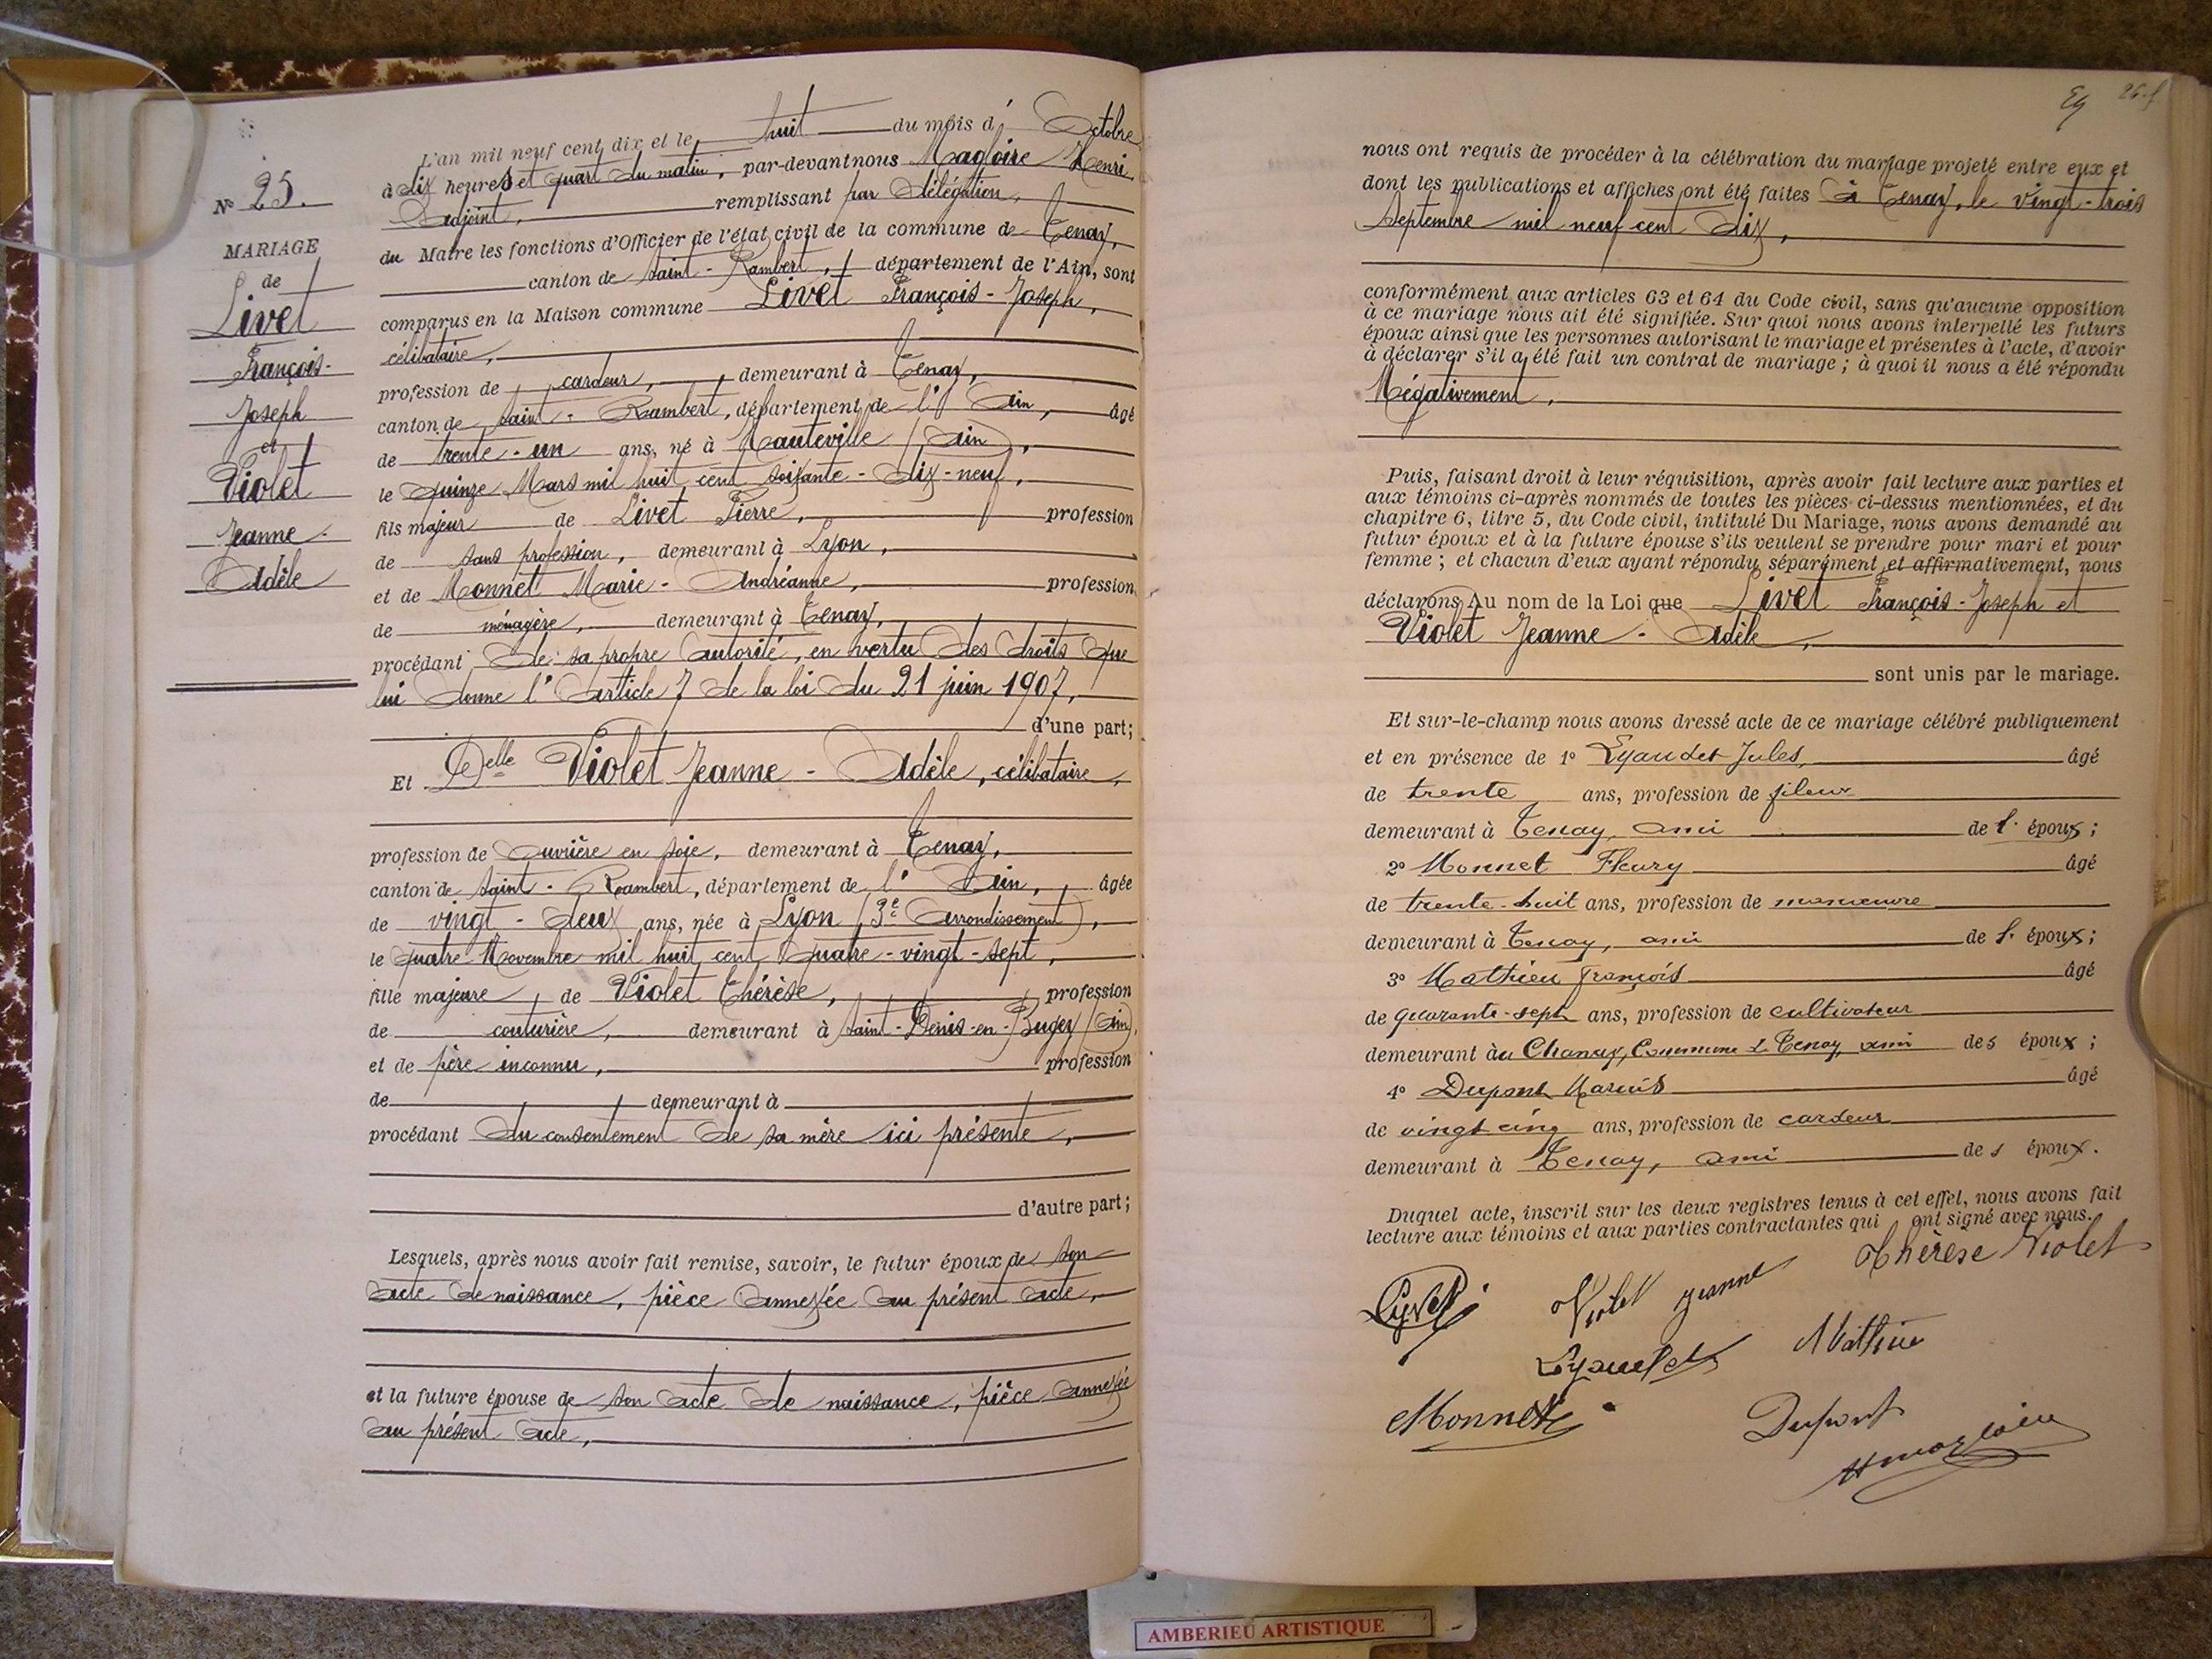 L'an mil neuf cent dix et le huit du mois d' Octobre
à dix heures et quart du matin, par-devant nous Magloire Henri,
Adjoint, remplissant par délégation,
du Maire les fonctions d'Officier de l'état civil de la commune de Tenay,
canton de Saint-Rambert, département de l'Ain, sont
comparus en la Maison commune Livet François-Joseph,
célibataire,
profession de cardeur, demeurant à Tenay,
canton de Saint-Rambert, département de l'Ain, âgé
de trente-un ans, né à Hauteville (Ain),
le quinze Mars mil huit cent soixante-dix-neuf,
fils majeur de Livet Pierre, profession
de sans profession, demeurant à Lyon,
et de Monnet Marie-Andréanne, profession
de ménagère, demeurant à Tenay,
procédant de sa propre autorité, en vertu des droits que
lui donne l'article 7 de la loi du 21 juin 1907,
d'une part;
Et Delle Violet Jeanne-Adèle, célibataire,
profession de ouvrière en soie, demeurant à Tenay,
canton de Saint-Rambert, département de l'Ain, âgée
de vingt-deux ans, née à Lyon (3e Arrondissement),
le quatre Novembre mil huit cent quatre-vingt-sept,
fille majeure de Violet Thérèse, profession
de couturière, demeurant à Saint-Denis-en-Bugey (Ain),
et de père inconnu, profession
de demeurant à
procédant du consentement de sa mère ici présente,
d'autre part;
Lesquels, après nous avoir fait remise, savoir, le futur époux de son
acte de naissance, pièce annexée au présent acte,
et la future épouse de son acte de naissance, pièce annexée
au présent acte,
No 25.
MARIAGE
de
Livet
François-
Joseph
et
Violet
Jeanne-
Adèle
nous ont requis de procéder à la célébration du mariage projeté entre eux et
dont les publications et affiches ont été faites à Tenay, le vingt-trois
Septembre mil neuf cent dix,
conformément aux articles 63 et 64 du Code civil, sans qu'aucune opposition
à ce mariage nous ait été signifiée. Sur quoi nous avons interpellé les futurs
époux ainsi que les personnes autorisant le mariage et présentes à l'acte, d'avoir
à déclarer s'il a été fait un contrat de mariage; à quoi il nous a été répondu
Négativement,
Puis, faisant droit à leur réquisition, après avoir fait lecture aux parties et
aux témoins ci-après nommés de toutes les pièces ci-dessus mentionnées, et du
chapitre 6, titre 5, du Code civil, intitulé Du Mariage, nous avons demandé au
futur époux et à la future épouse s'ils veulent se prendre pour mari et pour
femme; et chacun d'eux ayant répondu séparément et affirmativement, nous
déclarons Au nom de la Loi que Livet François-Joseph et
Violet Jeanne-Adèle,
sont unis par le mariage.
Et sur-le-champ nous avons dressé acte de ce mariage célébré publiquement
et en présence de 1o Lyaudet Jules, âgé
de trente ans, profession de fileur
demeurant à Tenay, ami de l' époux;
2o Monnet Fleury âgé
de trente-huit ans, profession de manœuvre
demeurant à Tenay, ami de l' époux;
3o Mathieu François âgé
de quarante-sept ans, profession de cultivateur
demeurant àu Chanay, Commune de Tenay, ami des époux;
4o Dupont Marius âgé
de vingt cinq ans, profession de cardeur
demeurant à Tenay, ami des époux.
Duquel acte, inscrit sur les deux registres tenus à cet effet, nous avons fait
lecture aux témoins et aux parties contractantes qui ont signé avec nous.
Thérèse Violet
Livet Violet Jeanne
Lyaudet Mathieu
Monnet Dupont
Hmagloire
AMBERIEU ARTISTIQUE